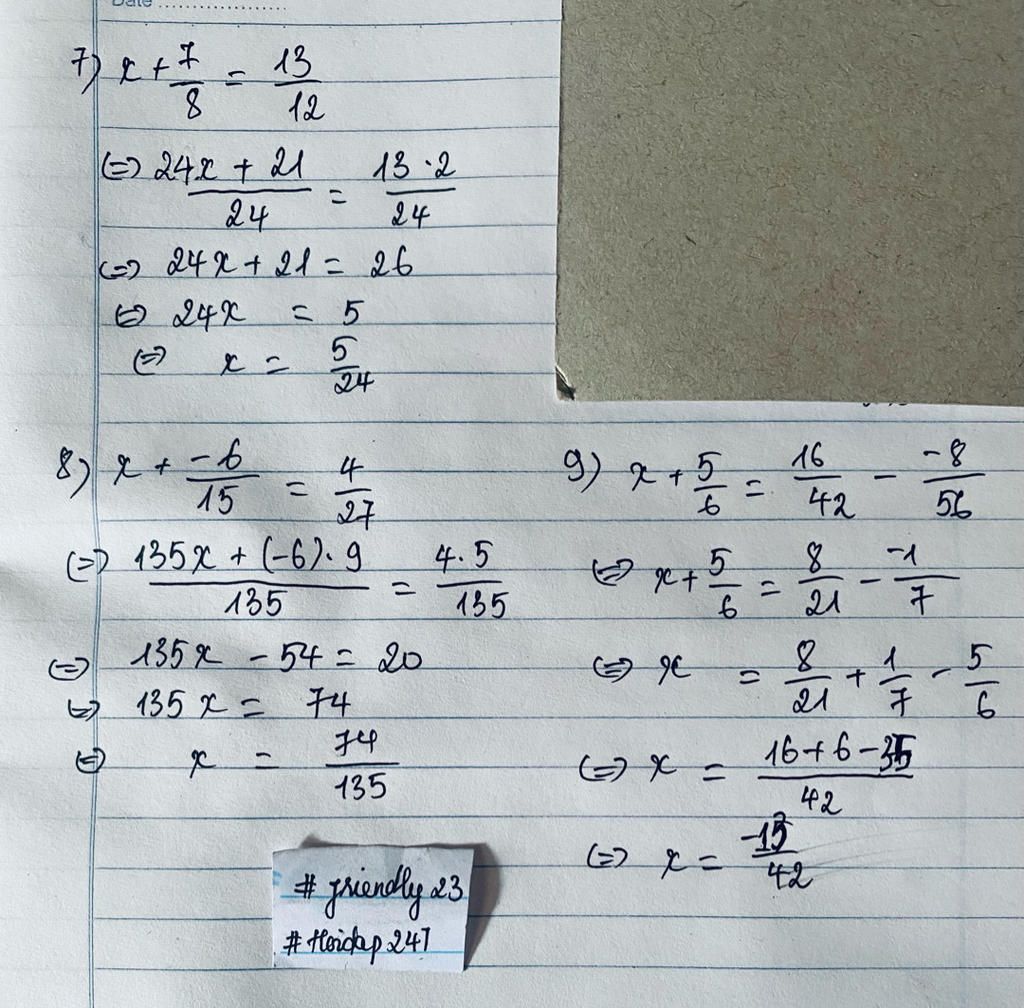 Date
7) x + 7/8 = 13/12
(=) 24x + 21/24 = 13·2/24
(=) 24x + 21 = 26
(=) 24x = 5
(=) x = 5/24
8) x + -6/15 = 4/27
(=) 135x + (-6)·9/135 = 4·5/135
(=) 135x - 54 = 20
(=) 135x = 74
(=) x = 74/135
9) x + 5/6 = 16/42 - -8/56
(=) x + 5/6 = 8/21 - -1/7
(=) x = 8/21 + 1/7 - 5/6
(=) x = 16+6-35/42
(=) x = /42
# friendly 23
# Hoidap 247